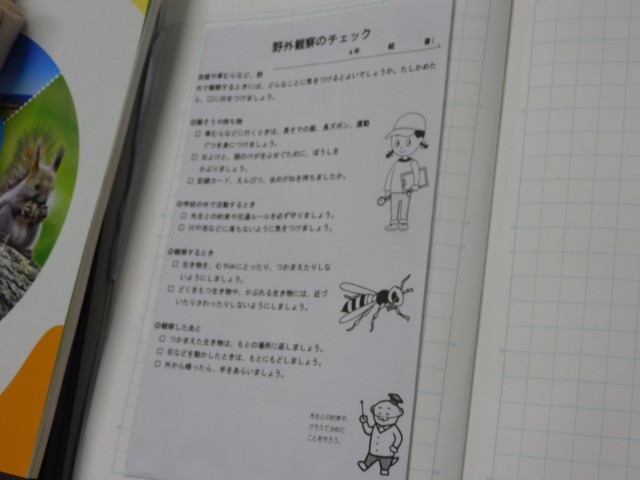 野外観察のチェック
4年 組 番(
校庭や草むらなど、野
外で観察するときには、どんなことに気をつけるとよいでしょうか。たしかめた
ら、□に印をつけましょう。
◎服そうや持ち物
□ 草むらなどに行くときは、長そでの服、長ズボン、運動
ぐつを身につけましょう。
□ 日よけと、頭のけがをふせぐために、ぼうしを
かぶりましょう。
□ 記録カード、えんぴつ、虫めがねを持ちましたか。
◎学校の外で活動するとき
□ 先生との約束や交通ルールを必ず守りましょう。
□ 川や池などに落ちないように気をつけましょう。
◎観察するとき
□ 生き物を、むやみにとったり、つかまえたりしな
いようにしましょう。
□ どくをもつ生き物や、かぶれる生き物には、近づ
いたりさわったりしないようにしましょう。
◎観察したあと
□ つかまえた生き物は、もとの場所に返しましょう。
□ 石などを動かしたときは、もとにもどしましょう。
□ 外から帰ったら、手をあらいましょう。
先生との約束や、
クラスで決めた
ことを守ろう。